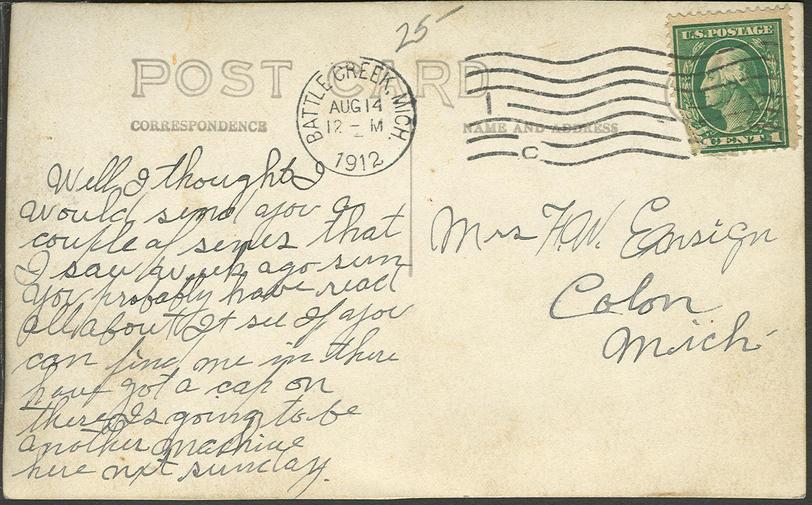 25-
POST CARD
CORRESPONDENCE
NAME AND ADDRESS
BATTLE CREEK, MICH.
AUG 14
12 - M
1912
1
C
U.S. POSTAGE
CENT 1
Well I thought I
would send you a
couple of senes that
I saw a week ago sun
you probably have read
all about It see If you
can find me in there
have got a cap on
there Is going to be
another machine
here nxt sunday.
Mrs H.W. Ensign
Colon
Mich-